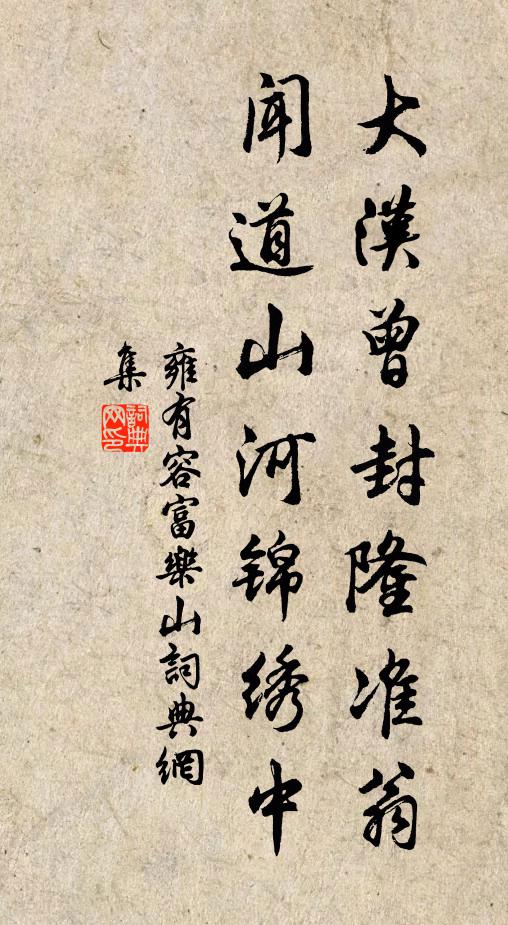 大漢曾封隆准翁
聞道山河锦绣中
雍有容富樂山詞典網
集
詞典網印